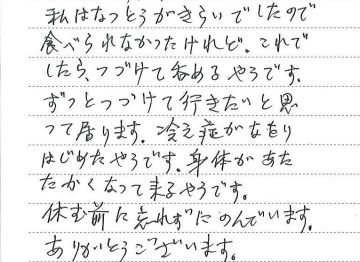 私はなっとうがきらいでしたので
食べられなかったけれど。これで
したら、つづけて呑めるやうです。
ずっとつづけて行きたいと思
って居ります。冷え症がなをり
はじめたやうです。身体があた
たかくなって来るやうです。
休む前に忘れずにのんでいます。
ありがとうございます。